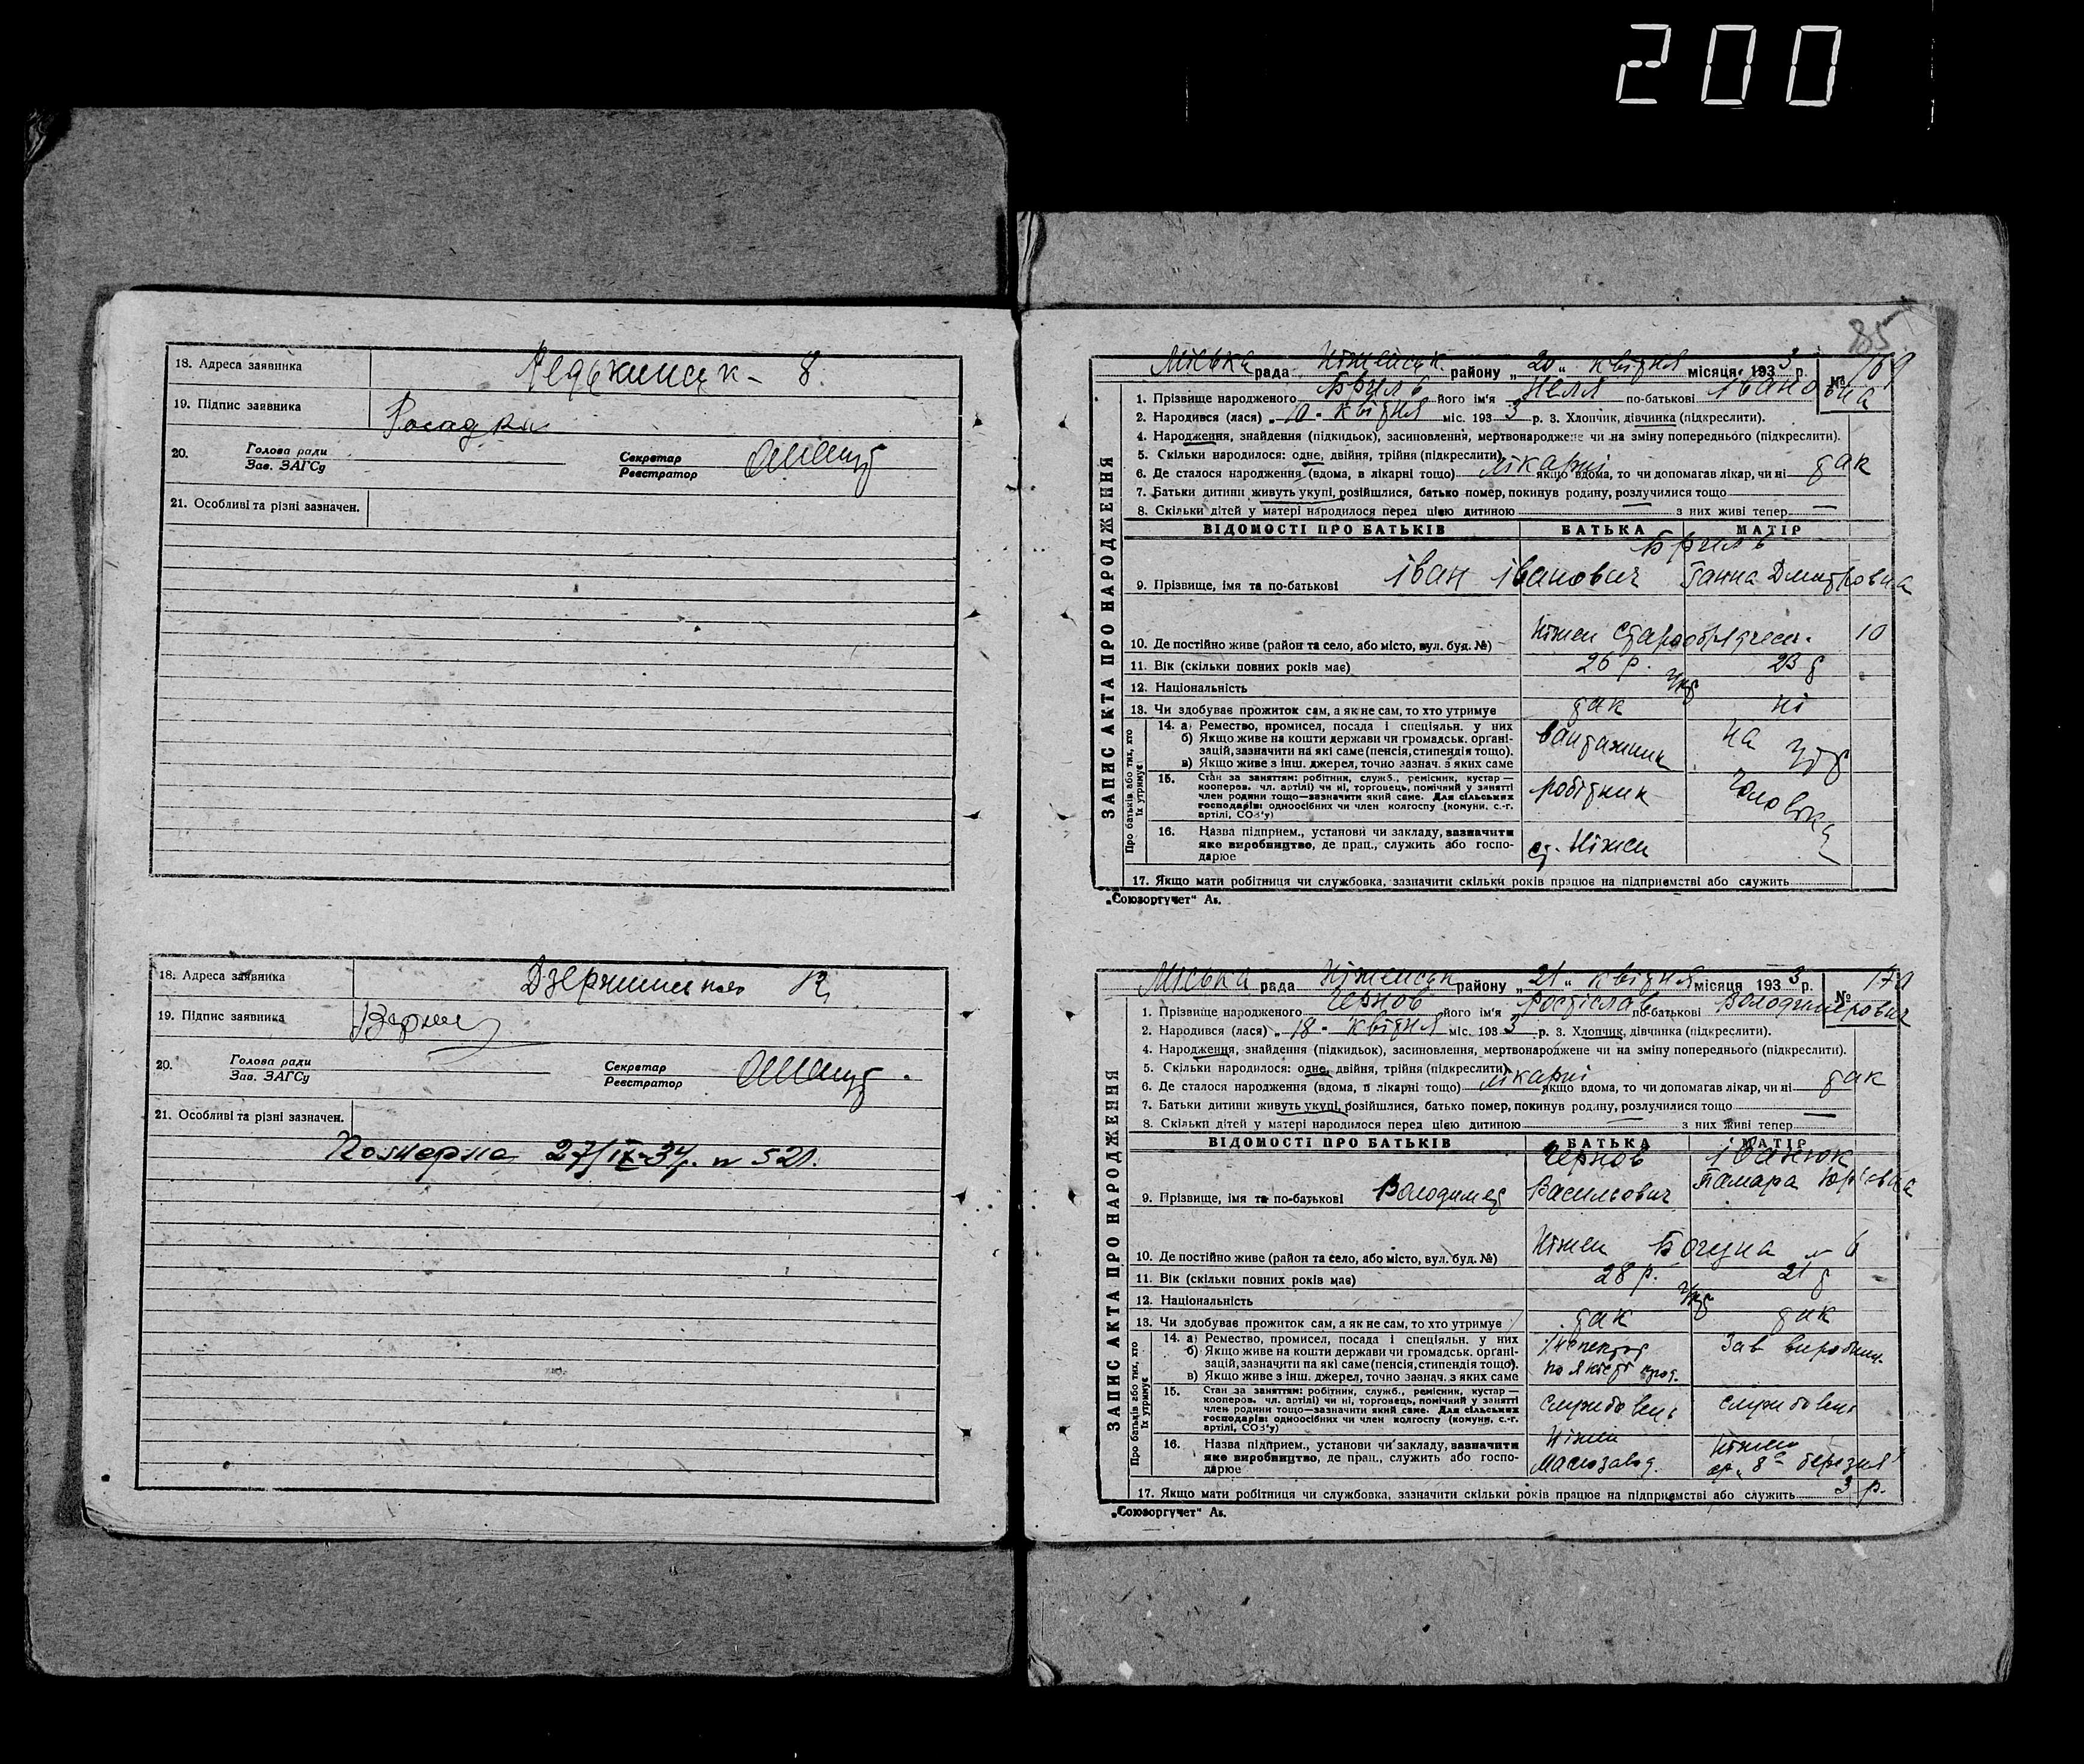 200
18. Адреса заявника 8.
19. Підпис заявника Росадка
20. Голова ради
Зав. ЗАГСу
Секретар
Реєстратор
21. Особливі та різні зазначен.
18. Адреса заявника
19. Підпис заявника
20. Голова ради
Зав. ЗАГСу
Секретар
Реєстратор
21. Особливі та різні зазначен.
Померла 27/IX-34р. № 521.
85
ЗАПИС АКТА ПРО НАРОДЖЕННЯ
Міська рада Ніженськ району „20“ квітня місяця 1933 р. № 169
1. Прізвище народженого Бриль його ім'я Неля по-батькові Івановна
2. Народився (лася) „10 - квітня міс. 1933 р. 3. Хлопчик, дівчинка (підкреслити).
4. Народження, знайдення (підкидьок), засиновлення, мертвонароджене чи на зміну попереднього (підкреслити).
5. Скільки народилося: одне, двійня, трійня (підкреслити)
6. Де сталося народження (вдома, в лікарні тощо) лікарні якщо вдома, то чи допомагав лікар, чи ні так
7. Батьки дитини живуть укупі, розійшлися, батько помер, покинув родину, розлучилися тощо
8. Скільки дітей у матері народилося перед цією дитиною — з них живі тепер —
ВІДОМОСТІ ПРО БАТЬКІВ БАТЬКА МАТІР
Бриль
9. Прізвище, імя та по-батькові Іван Іванович Ганна Дмитровна
10. Де постійно живе (район та село, або місто, вул. буд. №) Ніжен 10
11. Вік (скільки повних років має) 26 р. 23 р
12. Національність Укр
13. Чи здобуває прожиток сам, а як не сам, то хто утримує так ні
Про батьків або тих, хто їх утримує
14. а) Ремество, промисел, посада і спеціяльн. у них
б) Якщо живе на кошти держави чи громадськ. органі-
зацій, зазначити на які саме (пенсія, стипендія тощо).
в) Якщо живе з інш. джерел, точно зазнач. з яких саме
вантажник на утр
15. Стан за заняттям: робітник, служб., ремісник, кустар —
кооперов. чл. артілі) чи ні, торговець, помічний у занятті
член родини тощо—зазначити який саме. Для сільських
господарів: одноосібних чи член колгоспу (комуни, с.-г.
артілі, СОЗ'у)
робітник чоловіка
16. Назва підприєм., установи чи закладу, зазначити
яке виробництво, де прац., служить або госпо-
дарює
ст. Ніжен
17. Якщо мати робітниця чи службовка, зазначити скільки років працює на підприємстві або служить
„Союзоргучет“
ЗАПИС АКТА ПРО НАРОДЖЕННЯ
Міська рада Ніженськ району „21“ квітня місяця 1933 р. № 170
1. Прізвище народженого Чернов його ім'я Ростіслав по-батькові Володимирович
2. Народився (лася) „18 - квітня міс. 1933 р. 3. Хлопчик, дівчинка (підкреслити).
4. Народження, знайдення (підкидьок), засиновлення, мертвонароджене чи на зміну попереднього (підкреслити).
5. Скільки народилося: одне, двійня, трійня (підкреслити)
6. Де сталося народження (вдома, в лікарні тощо) лікарні якщо вдома, то чи допомагав лікар, чи ні так
7. Батьки дитини живуть укупі, розійшлися, батько помер, покинув родину, розлучилися тощо —
8. Скільки дітей у матері народилося перед цією дитиною — з них живі тепер
ВІДОМОСТІ ПРО БАТЬКІВ БАТЬКА МАТІР
Чернов Іванюк
9. Прізвище, імя та по-батькові Володимир Васильович Тамара Юріевна
10. Де постійно живе (район та село, або місто, вул. буд. №) Ніжен Богуна № 6
11. Вік (скільки повних років має) 28 р. 21 р
12. Національність Укр
13. Чи здобуває прожиток сам, а як не сам, то хто утримує так так
Про батьків або тих, хто їх утримує
14. а) Ремество, промисел, посада і спеціяльн. у них
б) Якщо живе на кошти держави чи громадськ. органі-
зацій, зазначити на які саме (пенсія, стипендія тощо).
в) Якщо живе з інш. джерел, точно зазнач. з яких саме
Інспектор
по якості
Зав виробнич.
15. Стан за заняттям: робітник, служб., ремісник, кустар —
кооперов. чл. артілі) чи ні, торговець, помічний у занятті
член родини тощо—зазначити який саме. Для сільських
господарів: одноосібних чи член колгоспу (комуни, с.-г.
артілі, СОЗ'у)
службовець службовець
16. Назва підприєм., установи чи закладу, зазначити
яке виробництво, де прац., служить або госпо-
дарює
Ніжен
Маслозавод.
Ніжен
ар. „8е березня“
17. Якщо мати робітниця чи службовка, зазначити скільки років працює на підприємстві або служить 3 р.
„Союзоргучет“